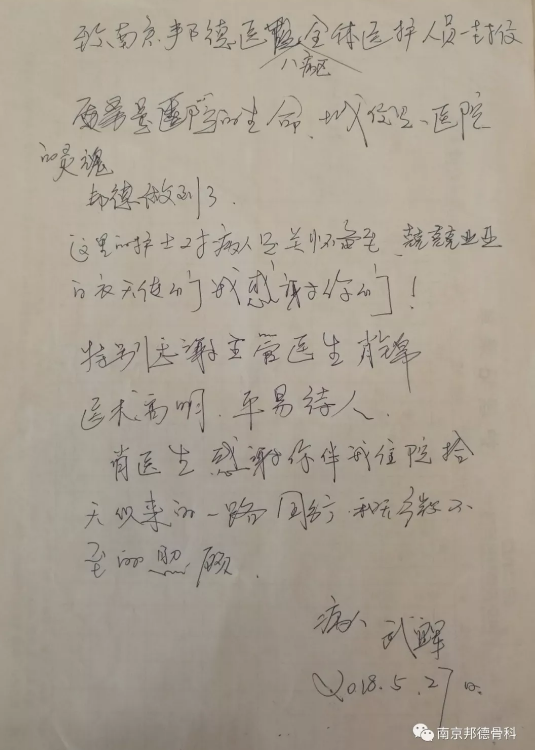 致南京邦德医院全体医护人员一封信
八病区
质量是医院的生命、诚信是医院
的灵魂
邦德做到了.
这里的护士对病人是关怀备至、兢兢业业
白衣天使们我感谢你们!
特别感谢主管医生肖锋
医术高明.平易待人.
肖医生感谢你伴我住院拾
天以来的一路同行和无微不
至的照顾.
病人 武军
2018.5.27日.
南京邦德骨科